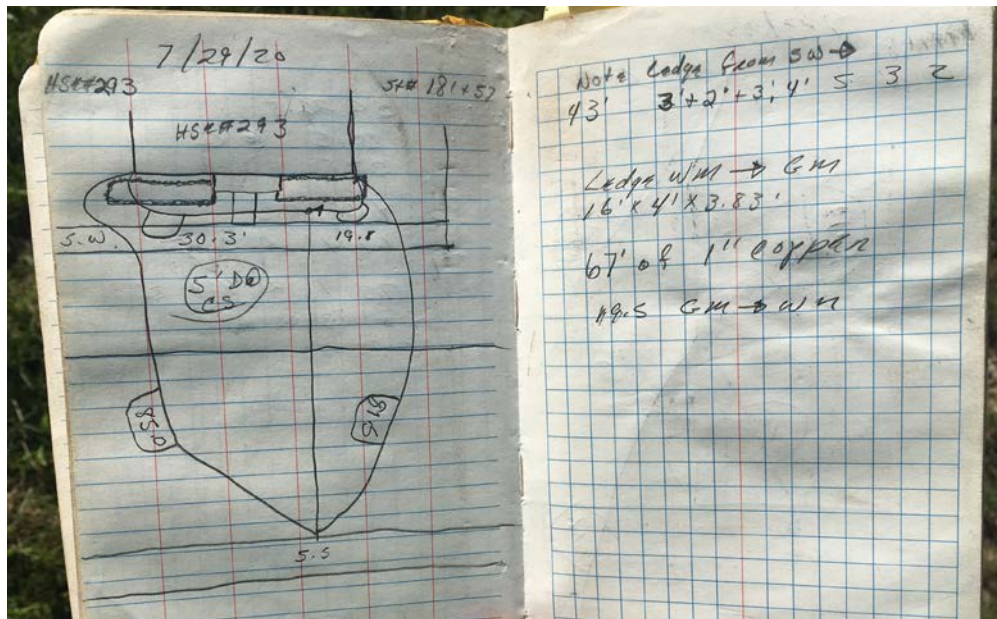 7/29/20
HS##293
St# 18'+57
HS##293
S.W.
30.3'
19.8
5' D@
CS
85.0
91.5
S.S
Note Ledge from SW→
43' 3'+2'+3; 4' 5 3 2
Ledge WM → GM
16' x 4' x 3.83'
67' of 1" copper
49.5 GM → WM